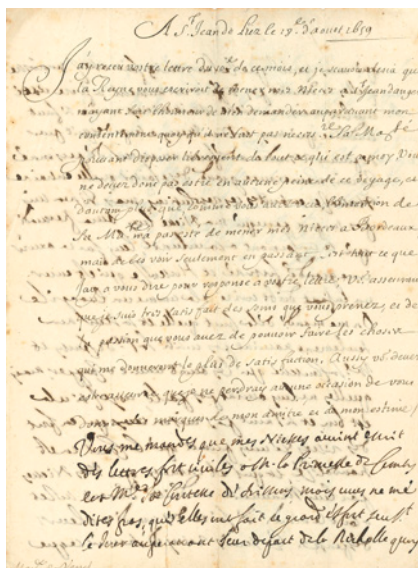 A St Jean de Luz le 19e d'aoust 1659
J'ay receu vostre lettre du de ce mois, et je scavois desia que
la Reyne vous escrivoit de mener mes Nieces a St Jean d'angely
m'ayant fait l'honneur de m'en demander auparavant mon
consentement quoyqu'il ne fust pas necessre Sa Mate
pouvant disposer librement de tout ce qui est a moy Vous
ne devez donc pas estre en aucune peine de ce voyage, et
d'autant plus que l'intention de
Sa Mate n'a pas esté de mener mes Nieces a Bordeaux
mais de les voir seulement en passant. C'est tout ce que
j'ay a vous dire pour response a vostre lettre, vs asseurant
que je suis tres satisfait des soins que vous prenez, et de
la passion que vous avez de pouvoir faire les choses
qui me donneront le plus de satisfaction. Aussy vs devez
estre asseuré que je ne perdray aucune occasion de vous
donner des marques de mon amitié et de mon estime
Vous me mandes que mes Nieces avoint escrit
des lettres fort civiles a M. la Princesse de Conty
et Me mais vous ne me
dites pas, qu'Elles ont fait le grand effort
le jour auparavant leur depart de la Rochelle